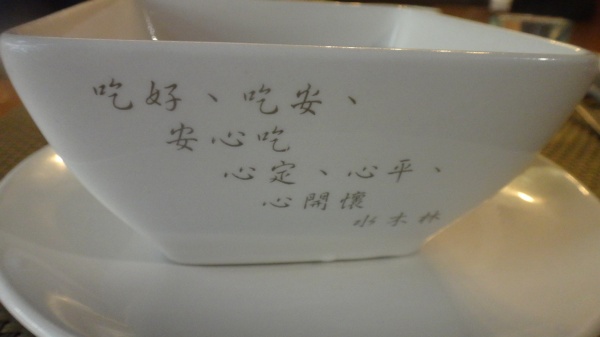 吃好、吃安、
安心吃
心定、心平、
心開懷
水木林